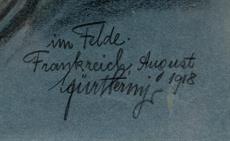 im Felde.
Frankreich, August
1918